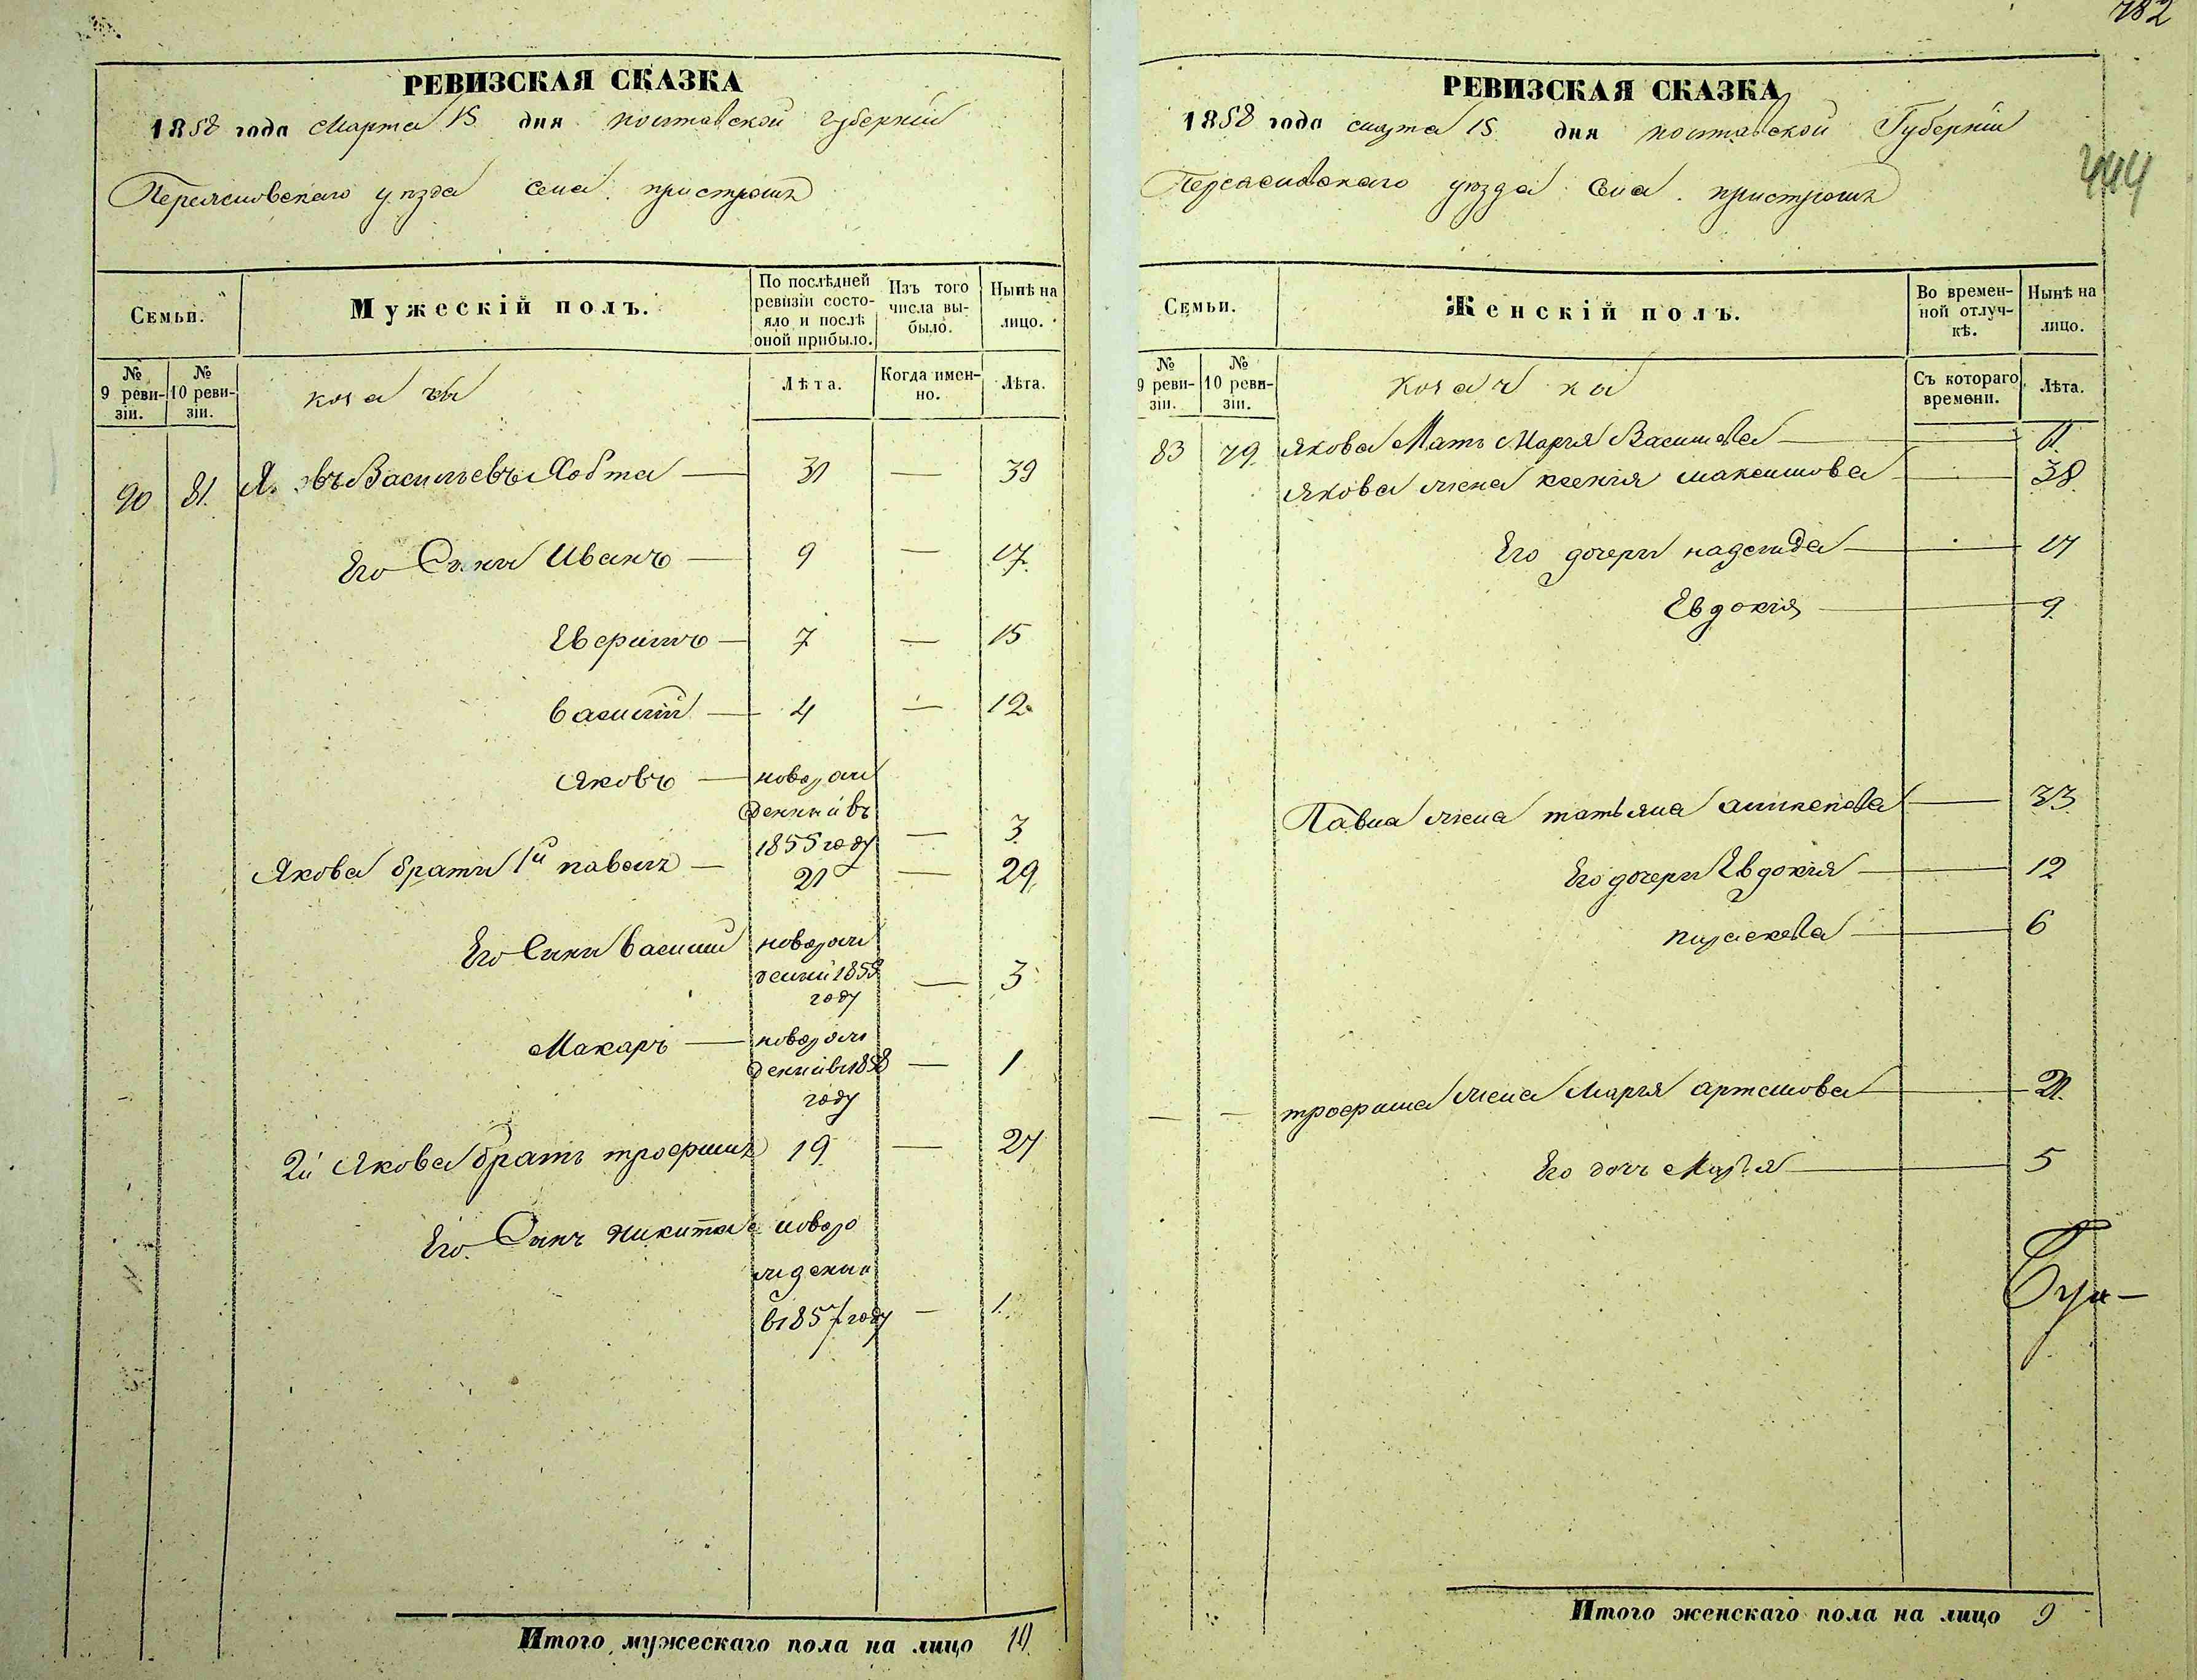 РЕВИЗСКАЯ СКАЗКА
1858 года Марта 15 дня полтавской губерніи
Переясловского уѣзда села пристромъ
Семьи.
Мужескій полъ.
По послѣдней ревизіи состояло и послѣ оной прибыло.
Изъ того числа выбыло.
Нынѣ на лицо.
№ 9 ревизіи.
№ 10 ревизіи.
козаки
Лѣта.
Когда именно.
Лѣта.
90 81. Васильевъ 31 — 39
Его Сыны Иванъ — 9 — 17.
7 — 15
василій — 4 — 12.
Яковъ — новорож
денный въ
1855 году — 3
Якова братья 1й павелъ — 21 — 29.
Его Сыны василий новорож
денный 1855 — 3
году
Макаръ — новорож
1858 — 1
году
2й Якова братъ трофимъ 19 — 27
Его Сынъ никита новоро
жденый
в 1857 году — 1.
Итого мужескаго пола на лицо 10.
782
РЕВИЗСКАЯ СКАЗКА
1858 года марта 15 дня полтавской Губерніи
Переясловского уѣзда села пристромъ
444
Семьи.
Женскій полъ.
Во временной отлучкѣ.
Нынѣ на лицо.
№ 9 ревизіи.
№ 10 ревизіи.
козачки
Съ котораго времени.
Лѣта.
83 79. Якова Мать Марья Васильева —
Якова жена ксенія максимова — 38.
Его дочери надежда — 17
Евдокія — 9.
Павла жена татьяна — 33.
Его дочери Евдокія — 12
параскева — 6
— — трофима жена Марья артемова — 21.
Его дочь Марья — 5
Итого женскаго пола на лицо 9